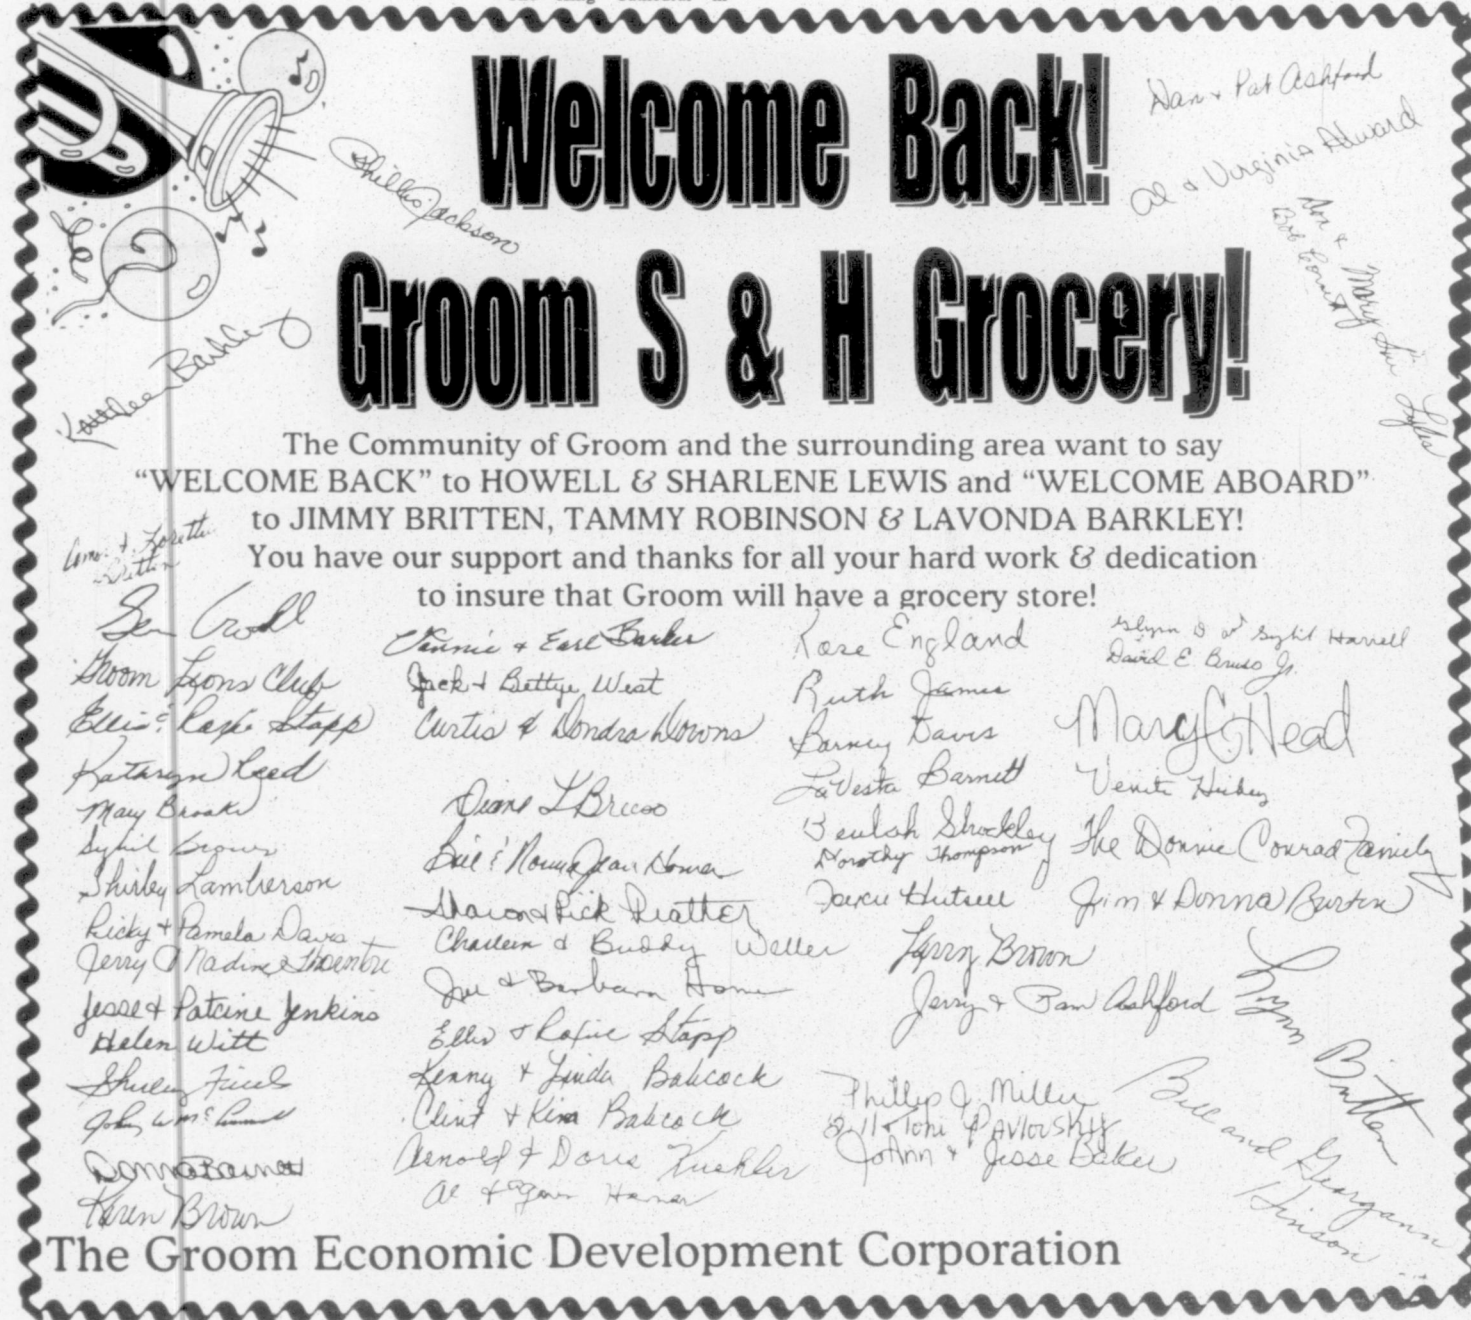 Welcome Back!
Groom S & H Grocery!
Dan & Pat Ashford
Al & Virginia Adward
Phillis Jackson
Don & Mary Sue Lyles
Bob Cornett
Kathleen Barkley
The Community of Groom and the surrounding area want to say
“WELCOME BACK” to HOWELL & SHARLENE LEWIS and “WELCOME ABOARD”
to JIMMY BRITTEN, TAMMY ROBINSON & LAVONDA BARKLEY!
You have our support and thanks for all your hard work & dedication
to insure that Groom will have a grocery store!
& Loretta
Britten
Groom Lions Club
Ellis & Stapp
Kataryn Reed
Mary Brooks
Sybil Brown
Shirley Lamberson
Ricky & Pamela Davis
Jerry & Nadine
Jesse & Patcine Jenkins
Helen Witt
John W
Donna Barnett
Karen Brown
& Earl Barker
Jack & Bettye West
Curtis & Dondra Downs
Diane L Bruso
Bill & Norma Jean Homer
Sharon & Rick Prather
Charlein & Buddy Weller
Joe & Barbara Homer
Ellis & Stapp
Kenny & Linda Babcock
Clint & Kim Babcock
Arnold & Doris Kuehler
Al & Homer
Rose England
Ruth James
Barney Davis
LaVesta Barnett
Beulah Shockley
Dorothy Thompson
Hutsell
Larry Brown
Jerry & Pam Ashford
Phillip J. Miller
Bill & Toni Pavlovsky
JoAnn & Jesse Baker
Glynn D & Sybil Harrell
David E. Bruso Jr.
Mary C Head
The Donnie Conrad Family
Jim & Donna Burton
Lynn Britten
Bill and Georgann
Hinson
The Groom Economic Development Corporation